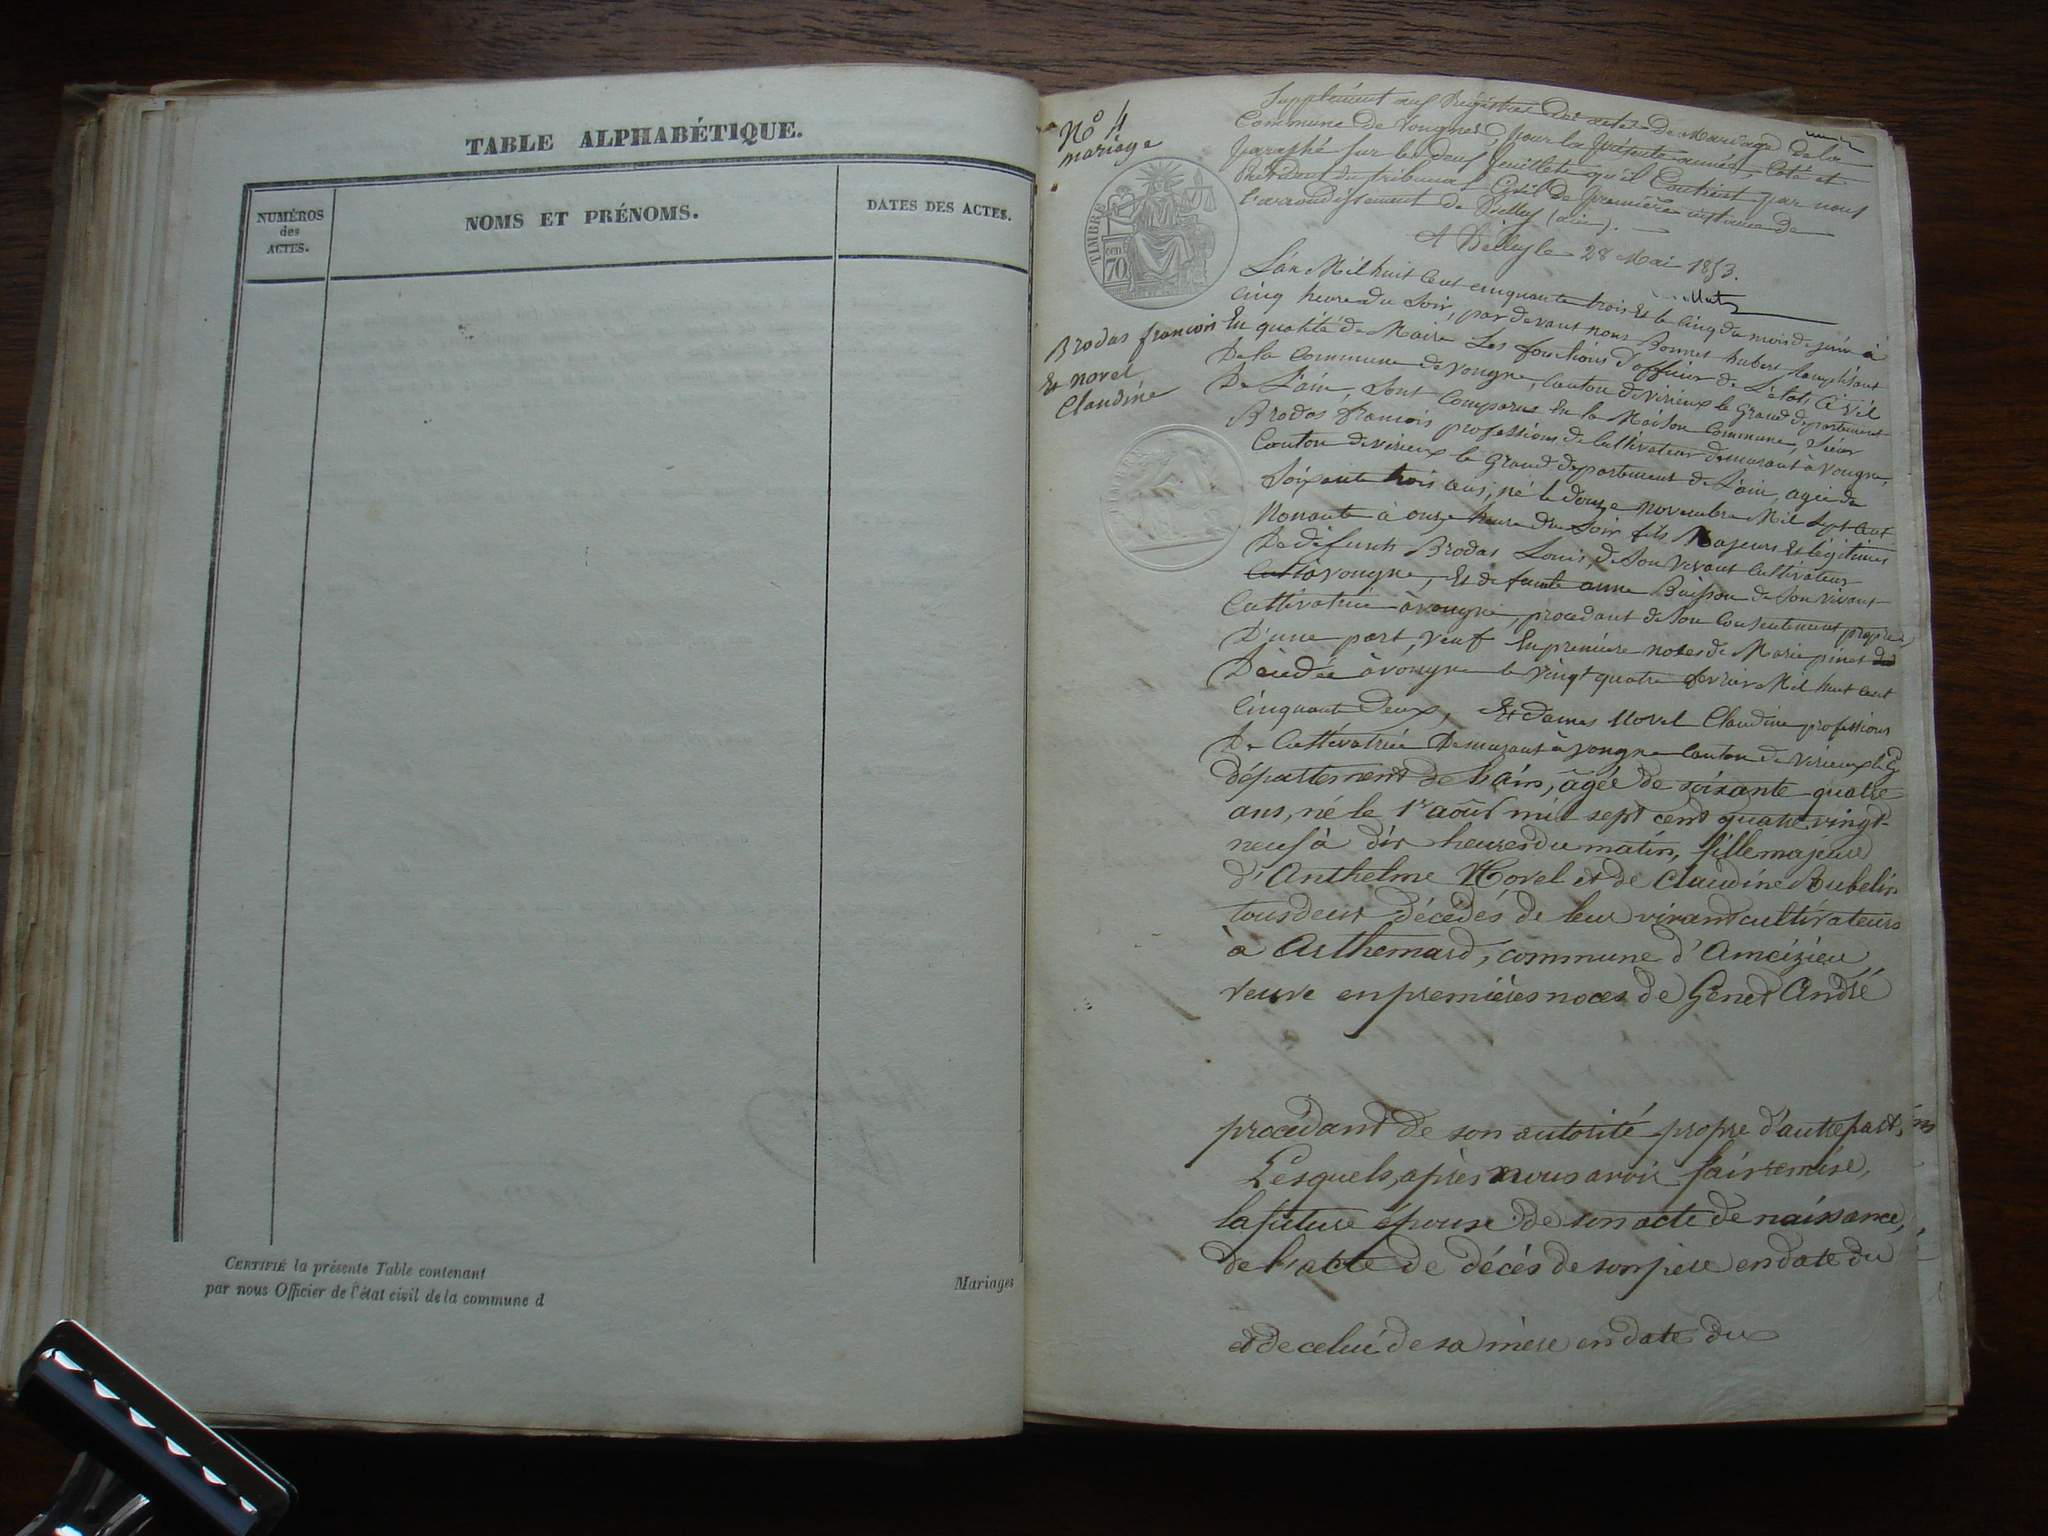 TABLE ALPHABÉTIQUE.
NUMÉROS
des
ACTES.
NOMS ET PRÉNOMS.
DATES DES ACTES.
CERTIFIÉ la présente Table contenant
par nous Officier de l'état civil de la commune d
Mariages
N° 4
mariage
Supplément aux Registres des actes de Mariage de la
Commune de Vongnes, pour la présente année, Coté et
paraphé sur les deux feuillets qu'il Contient par nous
Président du tribunal Civil de première instance de
l'arrondissement de Belley (ain).
A Belley le 28 Mai 1853.
TIMBRE
70
Brodas francois
Et novel
Claudine
L'an Mil huit Cent cinquante trois Et le Cinq du mois de juin à
Cinq heure du Soir, par devant nous Bonnet hubert Remplisant
En qualité de Maire Les fonctions d'officier de L'état Civil
De la Commune de vongne, Canton de virieux le Grand département
De L'ain, Sont Comparus En la Maison Commune, Sieur
Brodas francois professions de Cultivateur demurant à Vongne,
Canton de virieux le Grand département de L'ain, agée de
Soixante trois ans, né le douze novembre Mil Sept Cent
Nonante à onze heure du Soir fils Majeurs Et légitimes
De défunts Brodas Louis, de Son Vivant Cultivateur
à vongne, Et de anne Buisson de Son vivant
Cultivatrice à vongne, procédant de Son Consentement propre,
D'une part, veuf En première noses de Marie pinet
Déçédée à vongne le vingt quatre fevrier Mil huit Cent
Cinquante Deux, Et dames Novel Claudine professions
De Cultivatrice Demurant à vongne Canton de virieux le G
département de l'ain, âgée de soixante quatre
ans, né le 1er août mil sept cent quatre vingt
neuf à dix heures du matin, fille majeure
d'Anthelme Novel et de Claudine Rubelin
tous deux décédés de leur vivant cultivateurs
à Arthemard, commune d'Ameizieu
veuve en premières noces de Genet André
procédant de son autorité propre d'autre part,
Lesquels, après nous avoir fait remise,
la future épouse de son acte de naissance,
de l'acte de décès de son père en date du
et de celui de sa mère en date du